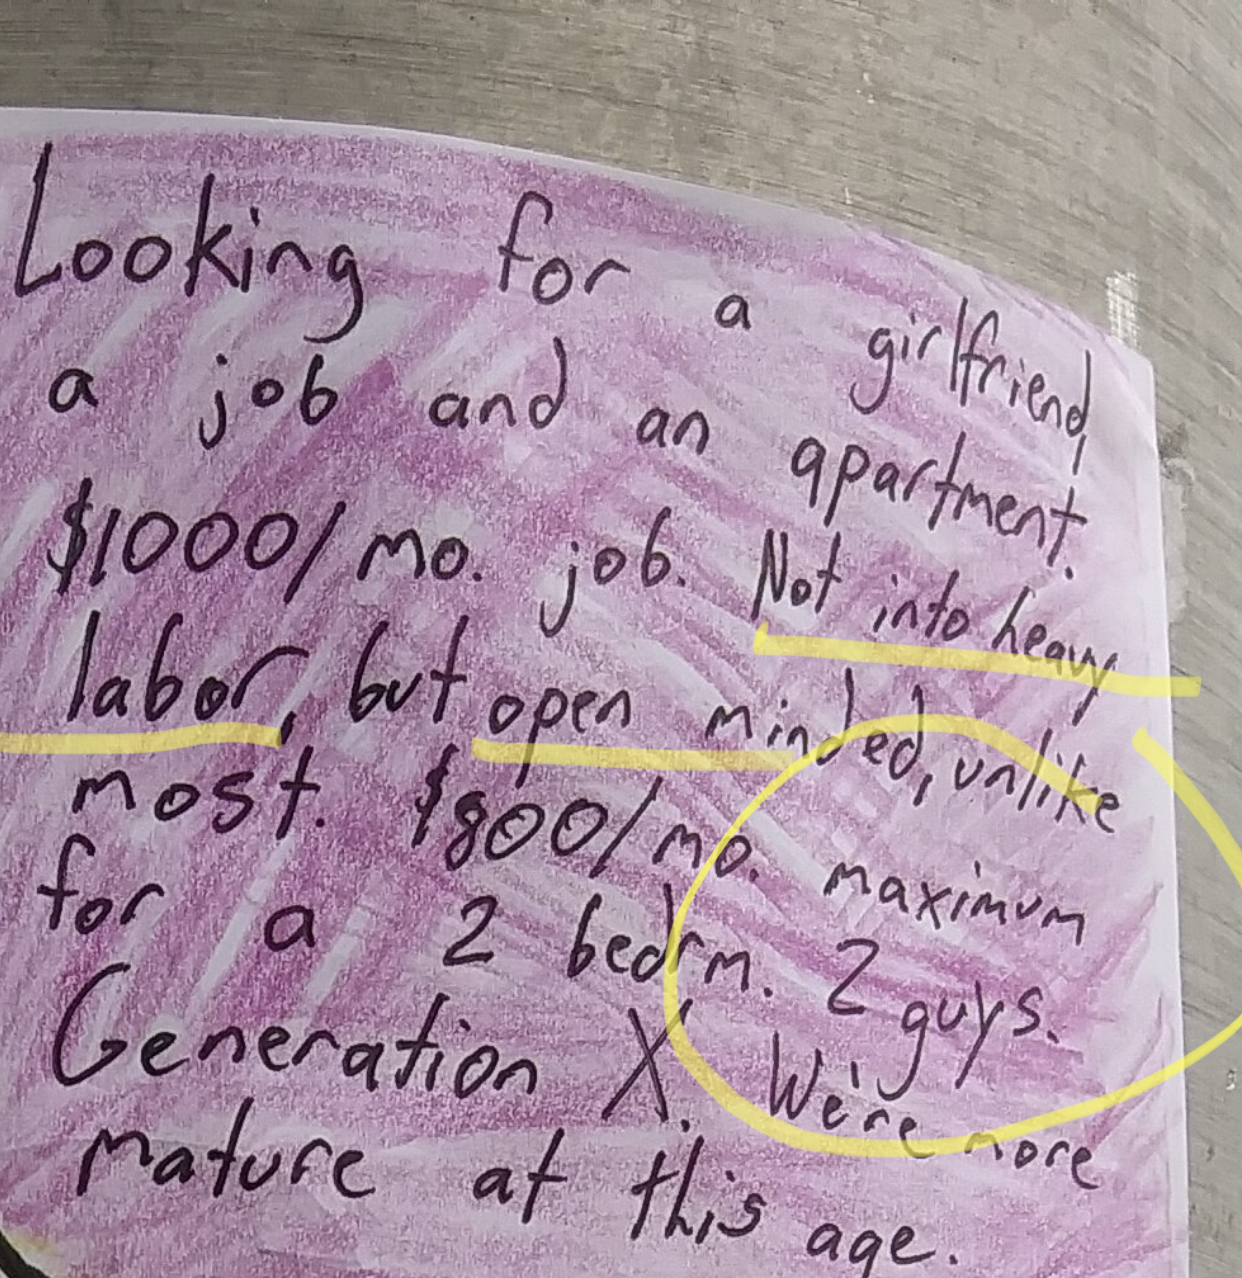 Looking for a girlfriend,
a job and an apartment.
$1000/mo. job. Not into heavy
labor, but open minded, unlike
most. $800/mo. maximum
for a 2 bedrm. 2 guys.
Generation X. We're more
mature at this age.